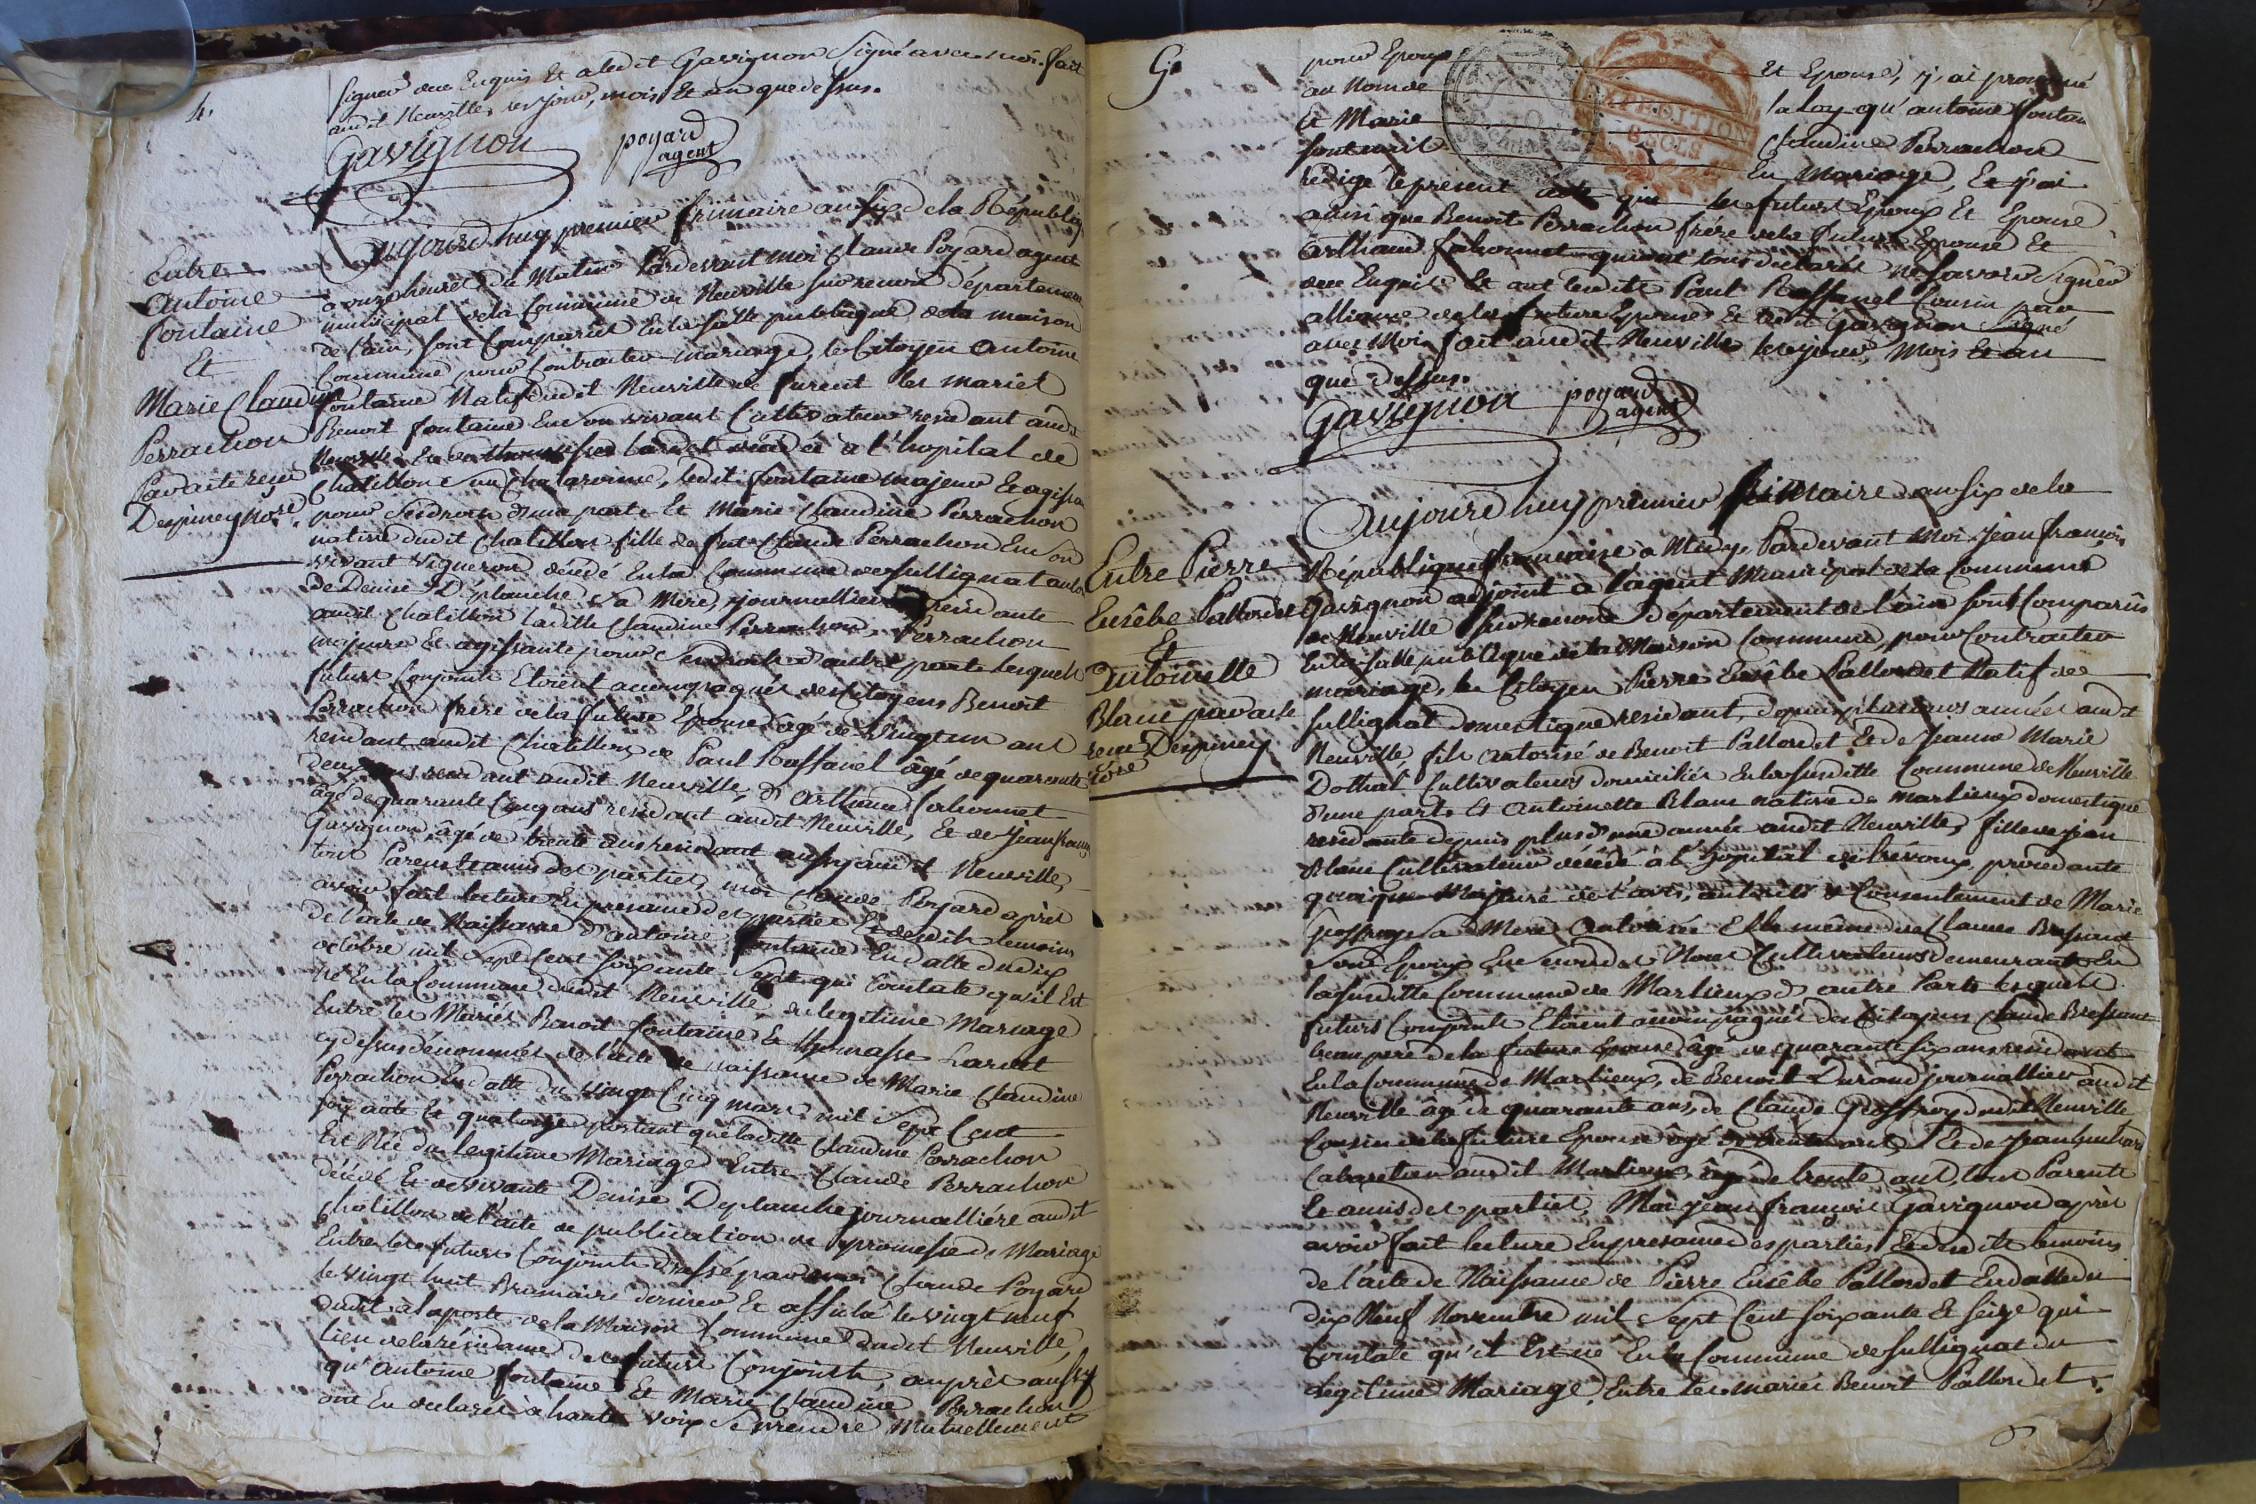 4.
signer de ce Enquis Et a ledit Gavignon Signé avec moi. fait
audit Neuville, les jour, mois Et an que dessus.
Gavignon poyard
agent
Entre
Antoine
fontaine
Et
Marie Claudine
Perrachon
Par acte reçu
Despiney No.re
Aujourd'huy premier frimaire an six de la Républiq
à onze heures du Matin Pardevant moi Claude Poyard agent
municipal de la Commune de Neuville sur renom département
de l'ain, sont Comparus En la salle publique de la maison
Commune pour Contracter mariage, le Citoyen Antoine
fontaine Natif dudit Neuville de furent les mariés
Benoit fontaine En son vivant Cultivateur residant audit
Neuville Et Thomasse Lardet décédé à l'hopital de
Chatillon sur Chalaronne, ledit fontaine majeur Et agissant
pour ses droits d'une part Et Marie Claudine Perrachon
native dudit Chatillon fille de fut Claude Perrachon En son
vivant Vigneron décédé En la Commune de sullignat
de Denise Déplanche sa Mere, journalliere residante
audit Chatillon ladite Claudine Perrachon
majeure Et agissante pour ses droits d'autre part lesquels
futurs Conjoints Etoient accompagnés des Citoyens Benoit
Perrachon frère de la future Epouse âgé de vingt un ans
residant audit Chatillon, de Paul Raffanel âgé de quarante
deux ans residant audit Neuville, d'Arthaud
âgé de quarante Cinq ans residant audit Neuville, Et de Jean françois
Gavignon âgé de trente ans residant aussy audit Neuville,
tous Parents Et amis des parties, moi Claude Poyard après
avoir fait lecture En presence des parties Et desdits temoins
de l'acte de Naissance d'Antoine fontaine En datte du dix
octobre mil Sept Cent soixante Sept qui Constate qu'il Est
né En la Commune dudit Neuville du legitime Mariage
Entre les Mariés Benoit fontaine Et Thomasse Lardet
cy dessus dénommés de l'acte de naissance de Marie Claudine
Perrachon En datte du vingt Cinq mars mil Sept Cent
soixante Et quatorze portant que ladite Claudine Perrachon
Est Née du legitime Mariage Entre Claude Perrachon
décédé Et de vivante Denise Déplanche journalliére audit
Chatillon de l'acte de publication de promesse de Mariage
Entre les futurs Conjoints dressé par moi Claude Poyard
le vingt huit Brumaire dernier Et affiché le vingt neuf
dudit à la porte de la Maison Commune dudit Neuville,
lieu de la résidance des futurs Conjoints, auprès aussy
qu'Antoine fontaine Et Marie Claudine Perrachon
ont Eu declaré à haute voix se prendre Mutuellement
pour Epoux Et Epouse, j'ai prononcé
au Nom de la Loy qu'antoine fontaine
Et Marie Claudine Perrachon
sont unis En Mariage, Et j'ai
redigé le présent acte que les futurs Epoux Et Epouse
ainsi que Benoit Perrachon frére de la future Epouse Et
Arthaud n'ont tous déclaré ne savoir signer
de ce Enquis Et ont ledits Paul Raffanel Cousin par
alliance de la future Epouse Et ledit Gavignon signé
avec Moi. fait audit Neuville les jour, Mois Et an
que dessus.
Gavignon poyard
agent
Entre Pierre
Eusèbe Pallordet
Et
Antoinette
Blanc par acte
reçu Despiney
No.re
Aujourd'huy premier frimaire an six de la
République française à Midy, Pardevant Moi Jean françois
Gavignon adjoint à l'agent Municipal de la Commune
de Neuville sur renom département de l'ain sont Comparus
En la salle publique de la Maison Commune, pour Contracter
mariage, le Citoyen Pierre Eusèbe Pallordet Natif de
sullignat domestique residant, depuis plusieurs années audit
Neuville, fils autorisé de Benoit Pallordet Et de Jeanne Marie
Dothal Cultivateurs domiciliés En la susditte Commune de Neuville
d'une part Et Antoinette Blanc native de Marlieux domestique
residante depuis plus d'une année audit Neuville, fille de jean
Blanc Cultivateur décédé à l'hopital de trévoux, procedante
quoique Majeure de l'avis, autorité & Consentement de Marie
Geoffroy sa Mere autorisée Elle même de Claude Bressant
son Epoux En secondes Noces Cultivateurs demeurants En
la susditte Commune de Marlieux d'autre Part lesquels
futurs Conjoints Etoient accompagnés des Citoyens Claude Bressant
beau pere de la future Epouse âgé de quarante six ans residant
En la Commune de Marlieux, de Benoit Durand journallier audit
Neuville âgé de quarante ans, de Claude Geoffroy dudit Neuville
Cousin de la future Epouse âgé de trente ans, Et de Jean
Cabaretier audit Marlieux, âgé de trente ans, tous Parents
Et amis des parties, Moi Jean françois Gavignon après
avoir fait lecture En presence des parties Et desdits temoins
de l'acte de Naissance de Pierre Eusèbe Pallordet En datte du
dix Neuf Novembre mil Sept Cent soixante Et seize qui
Constate qu'il Est né En la Commune de sullignat du
legitime Mariage Entre les mariés Benoit Pallordet